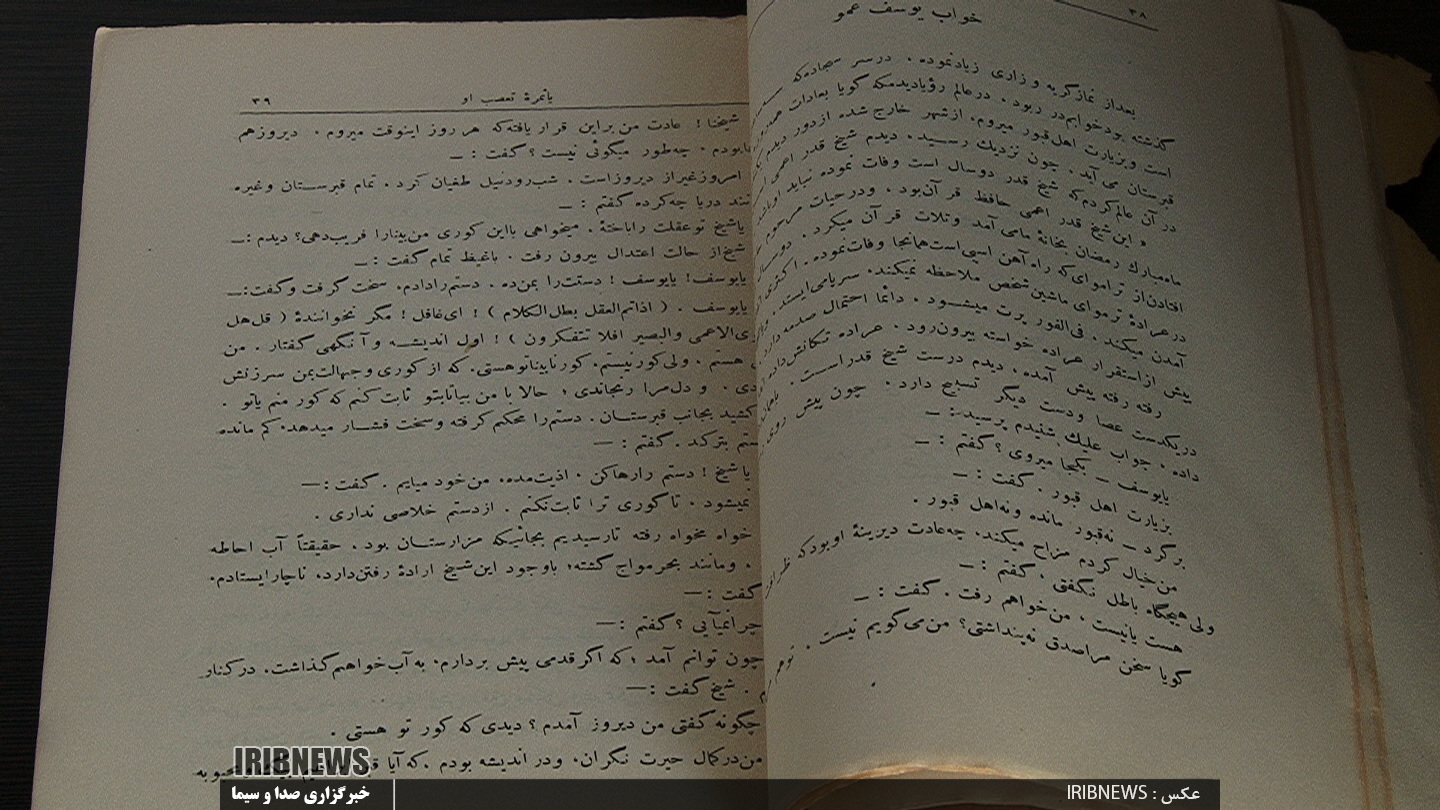 ۳۸
خواب یوسف عمو
بعداز نمازگریه وزاری زیادنموده . درسر سجاده‌که
گذشته بودخوابم‌در ربود . درعالم رؤیادیدمکه گویا بعادات
است وبزیارت اهل‌قبور میروم. ازشهر خارج شده ازدور دیدم
قبرستان می آید . چون نزدیك رسید . دیدم شیخ قدر اعمی
در آن عالم‌کردم‌که شیخ قدر دوسال است وفات نموده نباید
این شیخ قدر اعمی حافظ قرآن‌بود . ودرحیات مرحوم
ماه‌مبارك رمضان بخانهٔ مامی‌آمد وتلات قرآن میکرد .
افتادن‌از تراموای‌که راه‌آهن اسبی‌است‌همانجا وفات‌نموده .
درعرادهٔ ترموای ماشین‌شخص ملاحظه نمیکنند. سرپامی‌ایستد.
آمدن میکند . فی‌الفور پرت میشود . دائما احتمال صدمه دارد.
پیش ازاستقرار عراده خواسته بیرون‌رود . عراده تکانش‌داده
رفته رفته پیش آمده . دیدم درست شیخ قدراست .
دریکدست عصا ودست دیگر تسبیح دارد . چون پیش روی
داده . جواب علیك شنیدم پرسید: —
یایوسف — بکجا میروی ؟ گفتم : —
بزیارت اهل قبور . گفت : —
برگرد — نه‌قبور مانده ونه‌اهل قبور .
من‌خیال کردم مزاح میکند. چه‌عادت دیرینهٔ اوبودکه
ولی هیچگاه باطل نکفتی . گفتم : —
هست یانیست . من‌خواهم رفت . گفت : —
گویا سخن مراصدق نه‌پنداشتی؟ من‌می‌گویم نیست . توهم
یاثمرهٔ تعصب او
۳۹
شیخنا ! عادت من‌براین قرار یافته‌که هر روز اینوقت میروم . دیروزهم
چه‌طور میگوئی نیست ؟ گفت : —
امروزغیراز دیروزاست . شب‌رودنیل طغیان کرد . تمام قبرستان وغیره
دریا چه‌کرده گفتم : —
یاشیخ توعقلت راباختهٔ . میخواهی بااین کوری من‌بینارا فریب‌دهی؟ دیدم :—
شیخ‌از حالت اعتدال بیرون رفت . باغیظ تمام گفت : —
یایوسف! یایوسف ! دستت‌را بمن‌ده . دستم‌رادادم. سخت گرفت وگفت:—
یایوسف . ( اذاتم‌العقل بطل‌الکلام ) ! ای‌غافل ! مگر نخوانندهٔ ( قل‌هل
الاعمی والبصیر افلا تتفکرون ) ! اول اندیشه وآنگهی گفتار . من
هستم . ولی‌کورنیستم. کورنابیناتوهستی. که ازکوری وجهالت‌بمن سرزنش
و دل‌مرا رنجاندی ؛ حالا با من بیاتابتو ثابت کنم که کور منم یاتو .
کشید بجانب قبرستان . دستم‌را محکم‌گرفته وسخت فشار میدهد. کم مانده
بترکد . گفتم : —
یاشیخ ! دستم رارهاکن . اذیت‌مده. من‌خود میایم . گفت :—
نمیشود . تاکوری ترا ثابت‌نکنم . ازدستم خلاصی نداری .
خواه مخواه رفته تارسیدیم بجائیکه مزارستان بود . حقیقتاً آب احاطه
. ومانند بحرمواج گشته؛ باوجود این‌شیخ ارادهٔ رفتن‌دارد. ناچارایستادم.
گفت : —
چرانمیآیی ؟ گفتم : —
چون توانم آمد ؛ که اگرقدمی پیش بردارم. به آب‌خواهم‌گذاشت. درکنار
. شیخ گفت : —
چگونه گفتی من دیروز آمدم ؟ دیدی که کور تو هستی .
من‌درکمال حیرت نگران. ودر اندیشه بودم .که آیا
IRIBNEWS
خبرگزاری صدا و سیما
عکس : IRIBNEWS